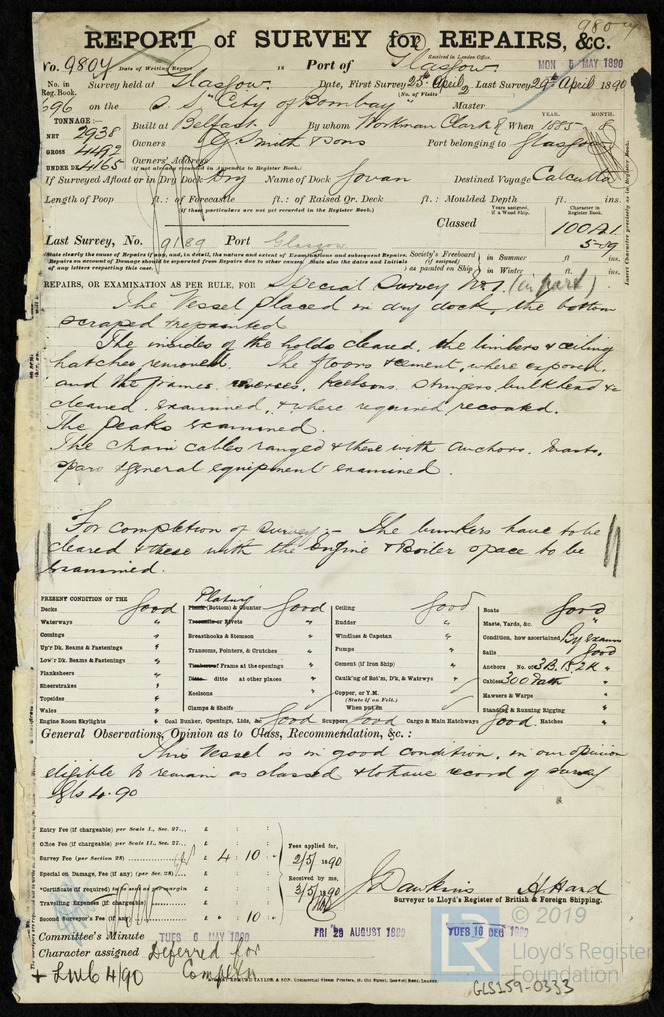 9804
REPORT of SURVEY for REPAIRS, &c.
No. 9804 Date of Writing Report 18 Port of Glasgow Received in London Office. MON 5 MAY 1890
No. in Reg. Book. Survey held at Glasgow Date, First Survey 25th April Last Survey 29th April 1890
(No. of Visits 2)
696 on the S.S. "City of Bombay" Master
TONNAGE:— YEAR. MONTH.
NET 2938 Built at Belfast By whom Workman Clark & When 1885 8
GROSS 4492 Owners G. Smith & Sons Port belonging to Glasgow
UNDER DK 4165 Owners' Address
(if not already recorded in Appendix to Register Book.)
If Surveyed Afloat or in Dry Dock Dry Name of Dock Govan Destined Voyage Calcutta
Length of Poop ft.: of Forecastle ft.: of Raised Qr. Deck ft.: Moulded Depth ft. ins.
(if these particulars are not yet recorded in the Register Book.)
Years assigned, if a Wood Ship. Character in Register Book.
Classed 100A1
5-89
Last Survey, No. 9189 Port Glasgow
State clearly the cause of Repairs if any, and, in detail, the nature and extent of Examinations and subsequent Repairs.
Repairs on account of Damage should be separated from Repairs due to other causes. State also the dates and Initials
of any letters respecting this case.
Society's Freeboard (if assigned) as painted on Ship in Summer ft ins.
in Winter ft. ins.
Insert Character precisely as in Register Book.
REPAIRS, OR EXAMINATION AS PER RULE, FOR Special Survey No. 1. (in part)
The Vessel placed in dry dock, the bottom
scraped & repainted
The insides of the holds cleared, the limbers & ceiling
hatches removed. The floors & cement, where exposed,
and the frames, reverses, keelsons, stringers, bulkhead &c
cleaned, examined, & where required recoated.
The Peaks examined.
The chain cables ranged & these with anchors, masts,
spars & general equipment examined.
For completion of survey:- The bunkers have to be
cleared & these with the Engine & Boiler space to be
examined.
PRESENT CONDITION OF THE
Decks Good
Waterways "
Comings "
Up'r Dk. Beams & Fastenings "
Low'r Dk. Beams & Fastenings "
Planksheers "
Sheerstrakes "
Topsides "
Wales "
Engine Room Skylights "
Plating
Plank (Bottom) & Counter Good
Treenails or Rivets "
Breasthooks & Stemson "
Transoms, Pointers, & Crutches "
Timbers of Frame at the openings "
Ditto ditto at other places "
Keelsons "
Clamps & Shelfs "
Coal Bunker, Openings, Lids, &c Good
Ceiling Good
Rudder "
Windlass & Capstan "
Pumps "
Cement (if Iron Ship) "
Caulk'ng of Bot'm, D'k, & Watrwys "
Copper, or Y.M.
(State if on Felt.)
When put on
Scuppers Good Cargo & Main Hatchways Good Hatches "
Boats Good
Masts, Yards, &c. "
Condition, how ascertained By exam
Sails Good
Anchors No. of 3 B. 1 S. 2 K "
Cables 300 fath "
Hawsers & Warps "
Standing & Running Rigging "
General Observations, Opinion as to Class, Recommendation, &c.:
This Vessel is in good condition, in our opinion
eligible to remain as classed & to have record of survey
Gls 4.90
Entry Fee (if chargeable) per Scale I., Sec. 27... £ : :
Office Fee (if chargeable) per Scale II., Sec. 27... £ : :
Survey Fee (per Section 28) £ 4 : 10 :
Special on Damage, Fee (if any) (per Sec. 28) £ : :
Certificate (if required) to be sent as per margin
Travelling Expenses (if chargeable) £ : :
Second Surveyor's Fee (if any) £ " : 10 "
Fees applied for,
2/5/1890
Received by me,
3/5/1890
J. Dawkins H. Hand
Surveyor to Lloyd's Register of British & Foreign Shipping.
Committee's Minute TUES 6 MAY 1890 FRI 29 AUGUST 1890 TUES 16 DEC 1890
Character assigned Deferred for
Completn
+ LMC 4/90
LR
© 2019
Lloyd's Register
Foundation
GLS159-0333